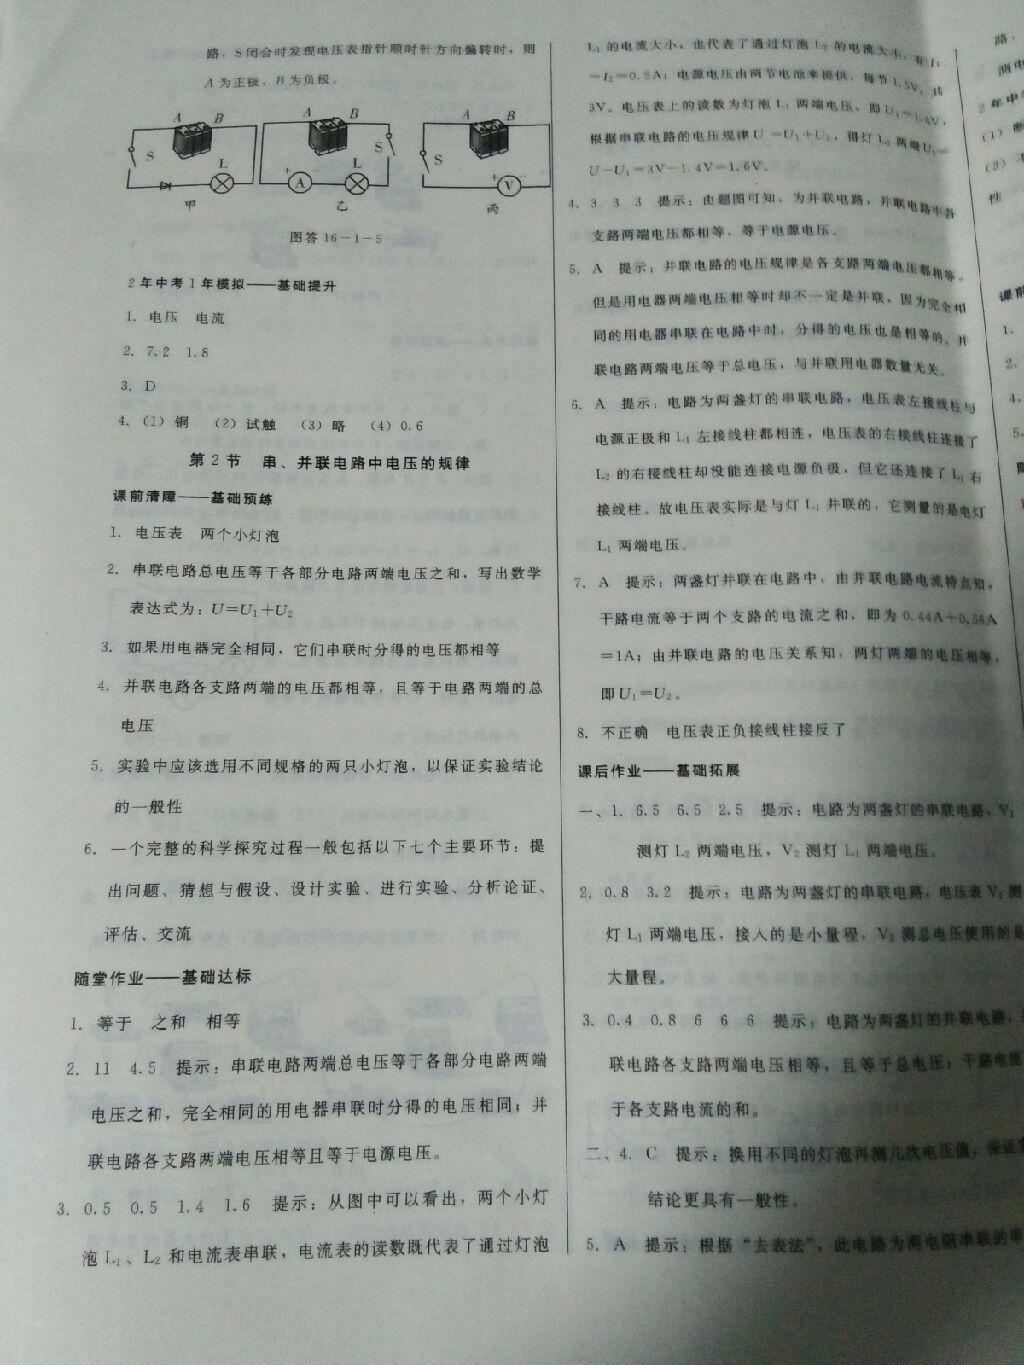 路，S闭合时发现电压表指针顺时针方向偏转时，则
A为正极，B为负极。
A B S L 甲
A B S A L 乙
A B S V 丙
图答16-1-5
2年中考1年模拟——基础提升
1. 电压 电流
2. 7.2 1.8
3. D
4. (1) 铜 (2) 试触 (3) 略 (4) 0.6
第2节 串、并联电路中电压的规律
课前清障——基础预练
1. 电压表 两个小灯泡
2. 串联电路总电压等于各部分电路两端电压之和，写出数学
表达式为：U=U₁+U₂
3. 如果用电器完全相同，它们串联时分得的电压都相等
4. 并联电路各支路两端的电压都相等，且等于电路两端的总
电压
5. 实验中应该选用不同规格的两只小灯泡，以保证实验结论
的一般性
6. 一个完整的科学探究过程一般包括以下七个主要环节：提
出问题、猜想与假设、设计实验、进行实验、分析论证、
评估、交流
随堂作业——基础达标
1. 等于 之和 相等
2. 11 4.5 提示：串联电路两端总电压等于各部分电路两端
电压之和，完全相同的用电器串联时分得的电压相同；并
联电路各支路两端电压相等且等于电源电压。
3. 0.5 0.5 1.4 1.6 提示：从图中可以看出，两个小灯
泡L₁、L₂和电流表串联，电流表的读数既代表了通过灯泡
L₁的电流大小，也代表了通过灯泡L₂的电流大小，有I₁
=I₂=0.5A；电源电压由两节电池来提供，每节1.5V，共
3V。电压表上的读数为灯泡L₁两端电压，即U₁=1.4V，
根据串联电路的电压规律U=U₁+U₂，得灯L₂两端U₂=
U-U₁=3V-1.4V=1.6V。
4. 3 3 3 提示：由题图可知，为并联电路，并联电路中各
支路两端电压都相等，等于电源电压。
5. A 提示：并联电路的电压规律是各支路两端电压都相等。
但是用电器两端电压相等时却不一定是并联，因为完全相
同的用电器串联在电路中时，分得的电压也是相等的。并
联电路两端电压等于总电压，与并联用电器数量无关。
6. A 提示：电路为两盏灯的串联电路，电压表左接线柱与
电源正极和L₁左接线柱都相连，电压表的右接线柱连接了
L₂的右接线柱却没能连接电源负极，但它还连接了L₁右
接线柱。故电压表实际是与灯L₁并联的，它测量的是电灯
L₁两端电压。
7. A 提示：两盏灯并联在电路中，由并联电路电流特点知，
干路电流等于两个支路的电流之和，即为0.44A+0.56A
=1A；由并联电路的电压关系知，两灯两端的电压相等，
即U₁=U₂。
8. 不正确 电压表正负接线柱接反了
课后作业——基础拓展
一、1. 6.5 6.5 2.5 提示：电路为两盏灯的串联电路，V₁
测灯L₂两端电压，V₂测灯L₁两端电压。
2. 0.8 3.2 提示：电路为两盏灯的串联电路，电压表V₁测
灯L₁两端电压，接入的是小量程，V₂测总电压使用的是
大量程。
3. 0.4 0.8 6 6 6 提示：电路为两盏灯的并联电路，
联电路各支路两端电压相等，且等于总电压；干路电流
于各支路电流的和。
二、4. C 提示：换用不同的灯泡再测几次电压值，保证
结论更具有一般性。
5. A 提示：根据“去表法”，此电路为两电阻串联的串
路，
测电
2年中
(1)
(2)
性
课前
1.
2.
4.
5.